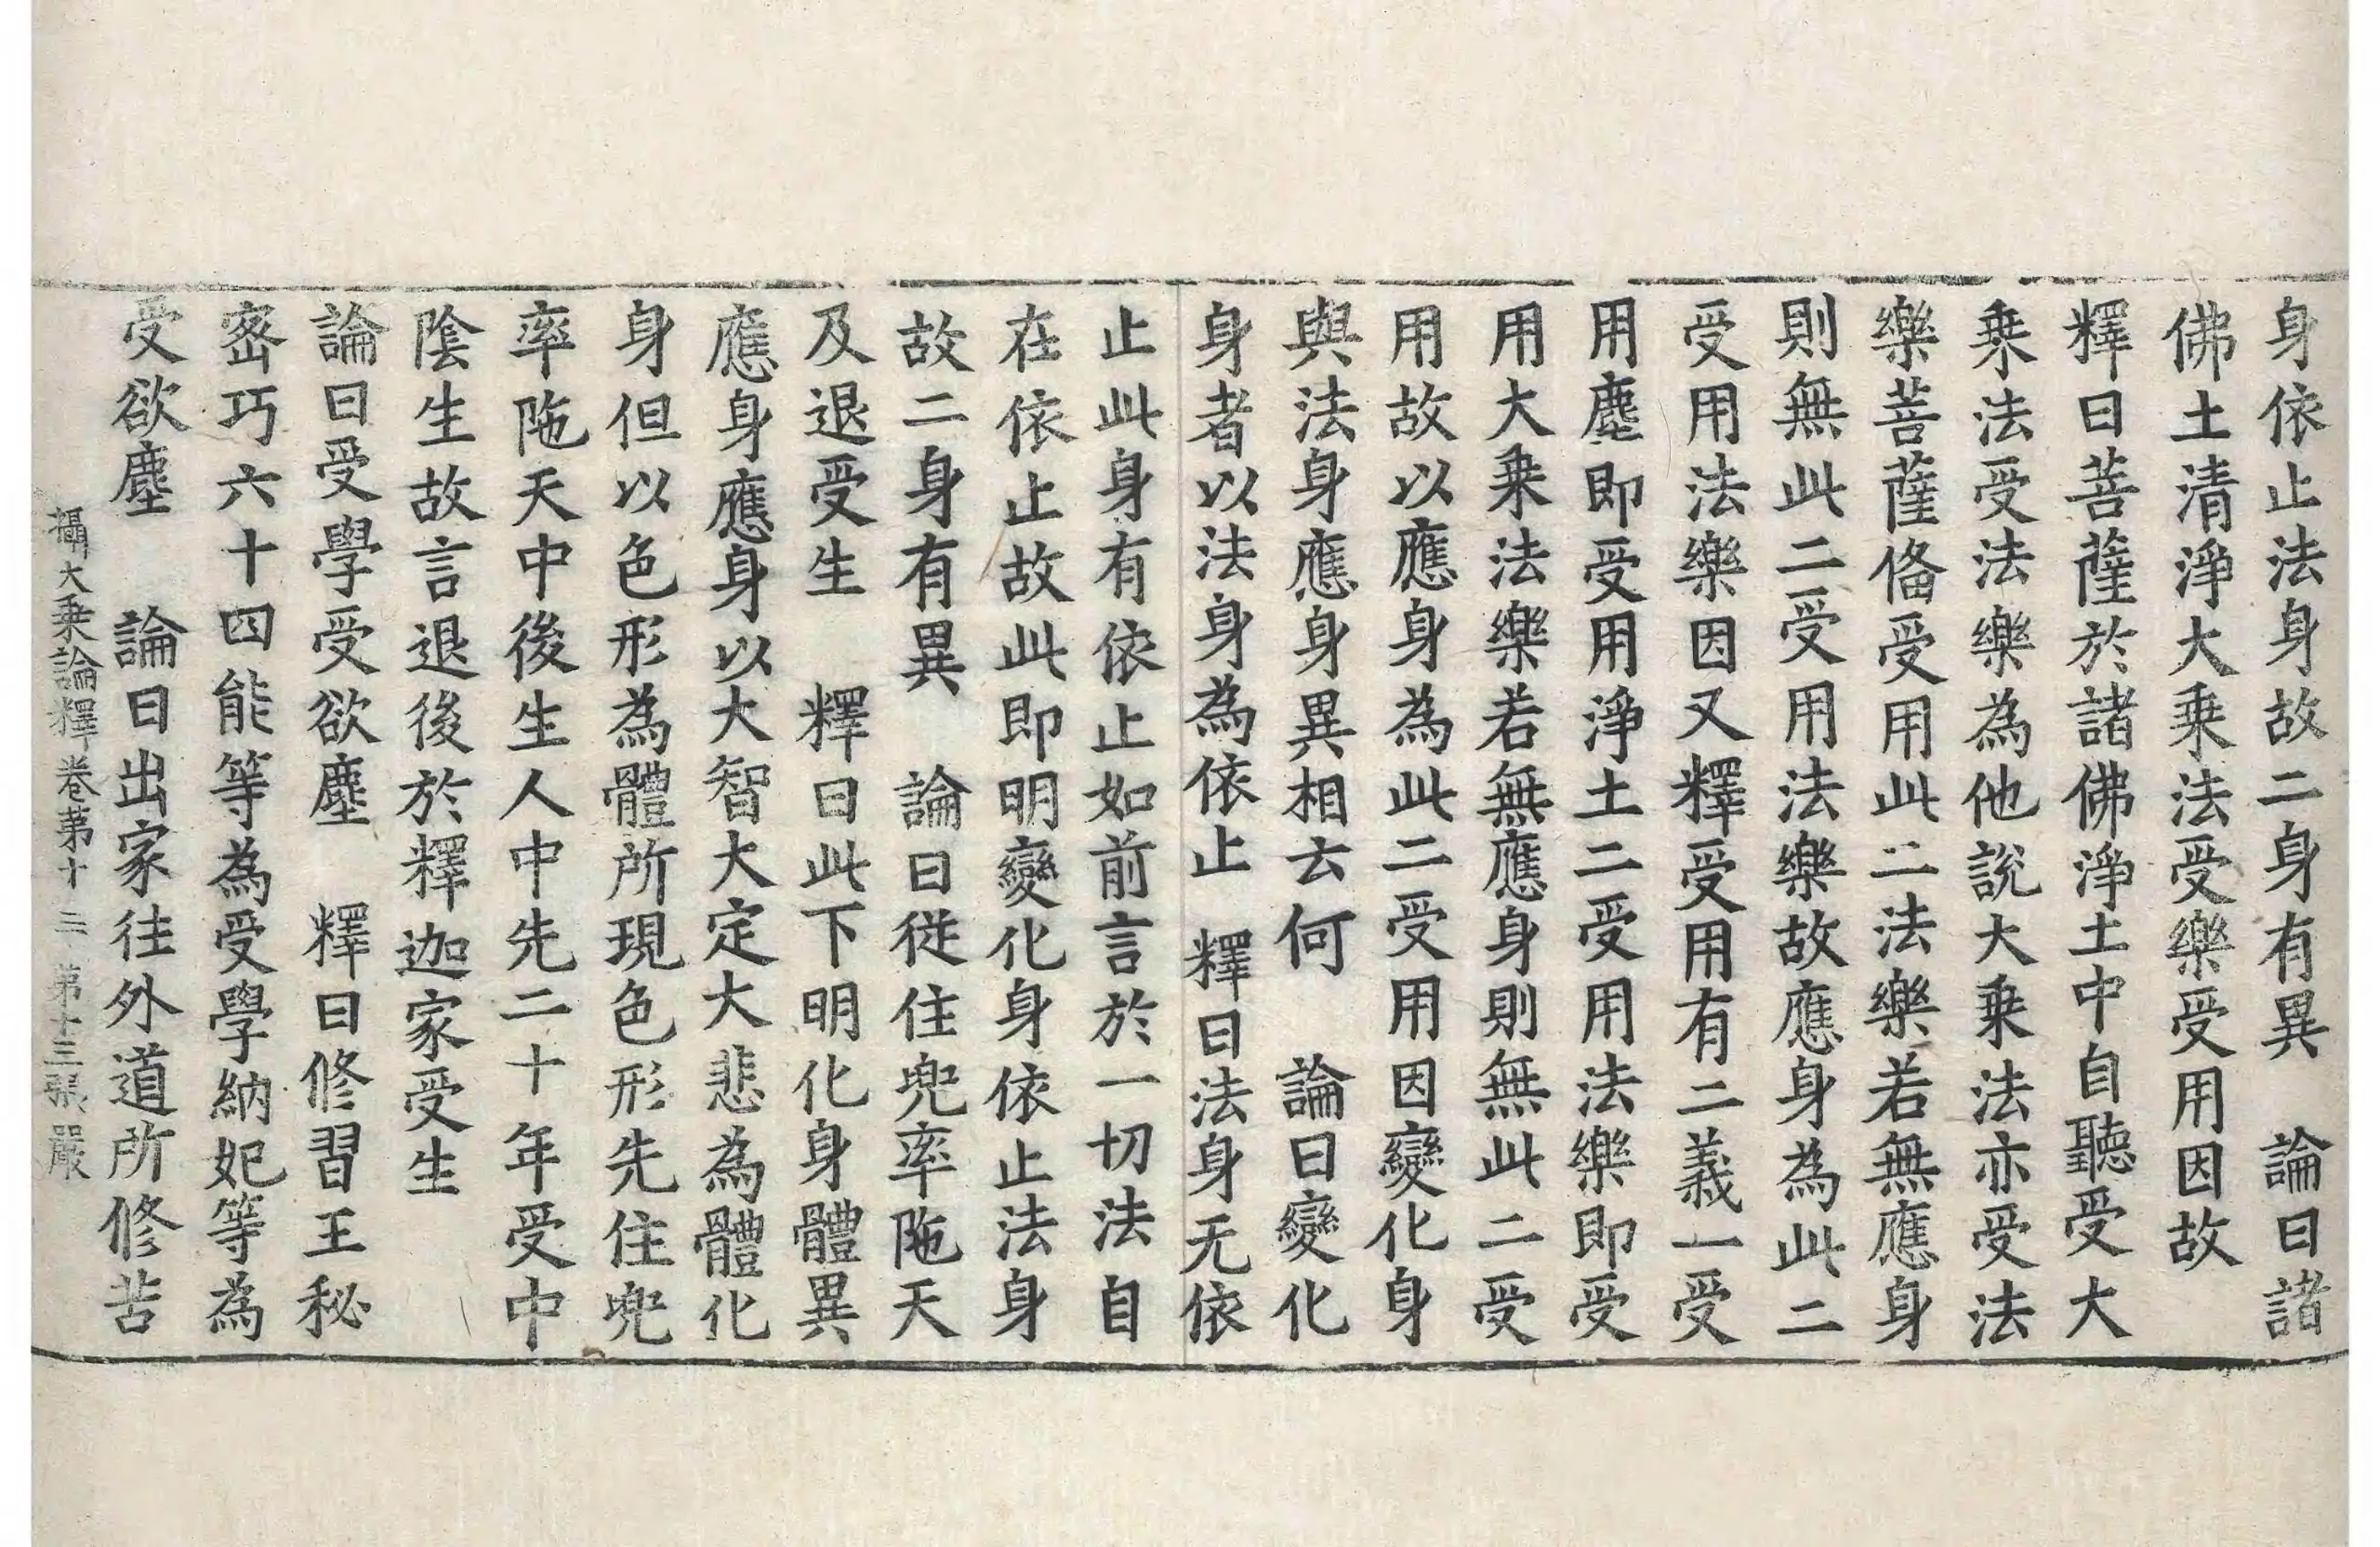 身依止法身故二身有異　論曰諸
佛土清淨大乗法受樂受用因故
釋曰菩薩於諸佛淨土中自聽受大
乗法受法樂為他說大乗法亦受法
樂菩薩俻受用此二法樂若無應身
則無此二受用法樂故應身為此二
受用法樂因又釋受用有二義一受
用塵即受用淨土二受用法樂即受
用大乗法樂若無應身則無此二受
用故以應身為此二受用因變化身
與法身應身異相云何　論曰變化
身者以法身為依止　釋曰法身无依
止此身有依止如前言於一切法自
在依止故此即明變化身依止法身
故二身有異　論曰従住兜率陁天
及退受生　釋曰此下明化身體異
應身應身以大智大定大悲為體化
身但以色形為體所現色形先住兜
率陁天中後生人中先二十年受中
陰生故言退後於釋迦家受生
論曰受學受欲塵　釋曰修習王秘
宻巧六十四能等為受學納妃等為
受欲塵　論曰出家往外道所修苦
攝大乗論釋卷第十三　第十三張　嚴